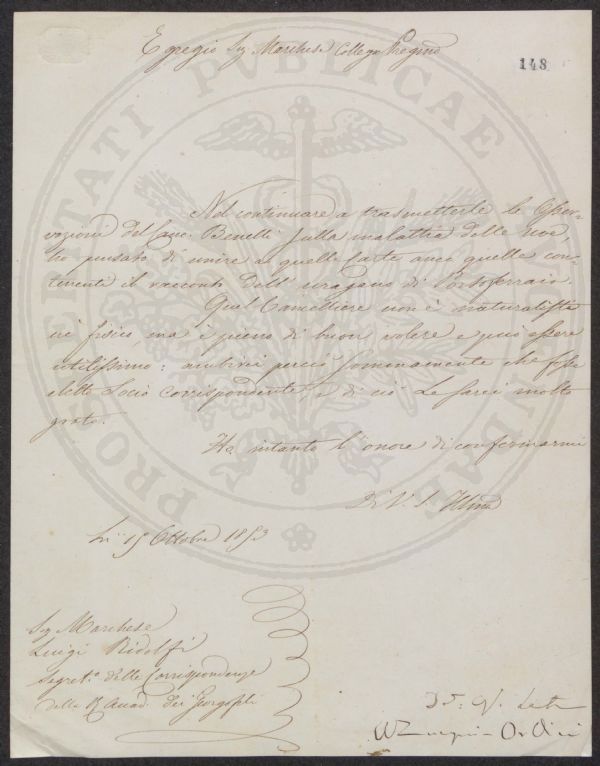 Egregio Sig Marchese Collega Pregmo
148
Nel continuare a trasmetterle le Osser-
vazioni del Canc. Binelli sulla malattia delle uve,
ho pensato di unire a quelle carte anco quelle con-
tenenti il racconto dell' uragano di Portoferraio.
Quel Cancelliere non è naturalista
nè fisico, ma è pieno di buon volere e può essere
utilissimo: ambirei perciò sommamente che fosse
eletto Socio corrispondente, e di ciò Le sarei molto
grato.
Ho intanto l'onore di confermarmi
Di V. S. Illma
Li 15 Ottobre 1853
Sig Marchese
Luigi Ridolfi
Segreto delle Corrispondenze
della R Accad. dei Georgofili
PROSPERITATI PUBLICAE